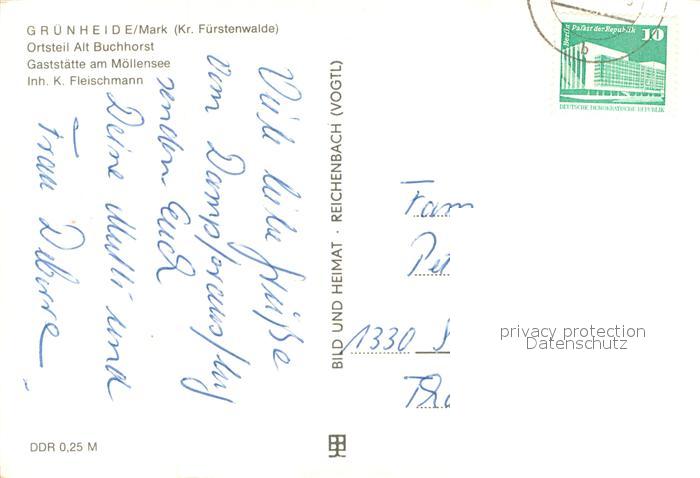 GRÜNHEIDE/Mark (Kr. Fürstenwalde)
Ortsteil Alt Buchhorst
Gaststätte am Möllensee
Inh. K. Fleischmann
Viele liebe Grüße
vom Dampferausflug
senden Euch
Deine Mutti und
Frau
DDR 0,25 M
BILD UND HEIMAT · REICHENBACH (VOGTL)
Berlin Palast der Republik 10
DEUTSCHE DEMOKRATISCHE REPUBLIK
b
Fam
Pet
1330 S
privacy protection
Datenschutz